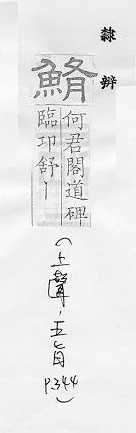 隸辨
鮪
何君閣道碑
臨邛舒丨
(上聲,五旨
P344)